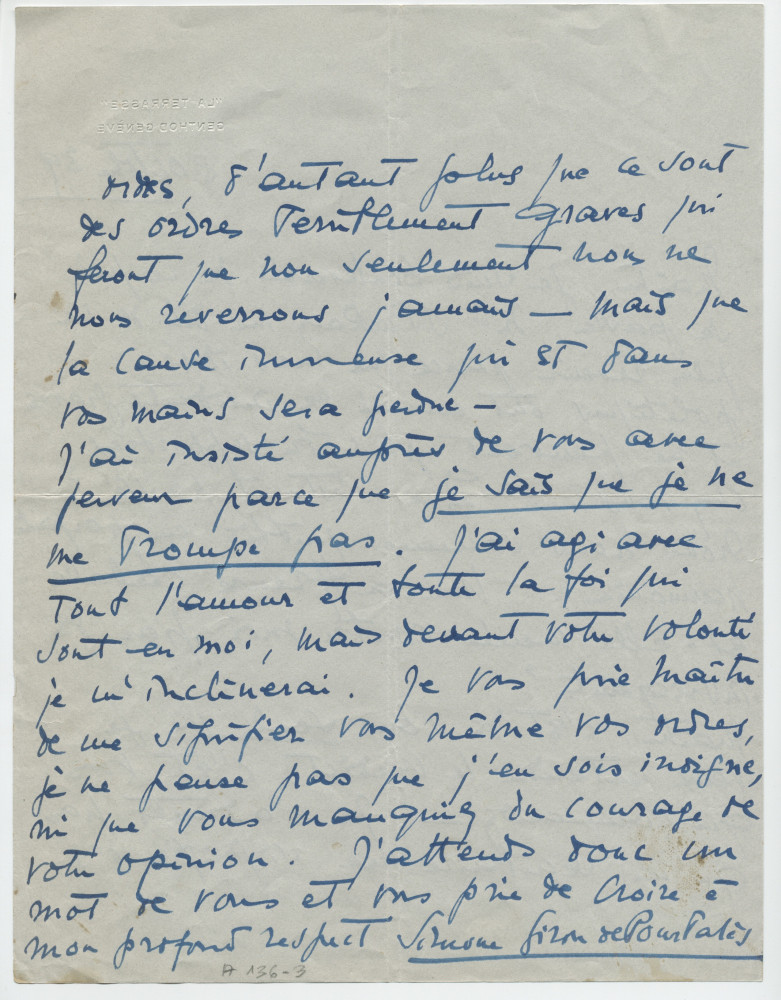 "LA TERRASSE"
CENTHOD GENÈVE
ordres, d'autant plus que ce sont
des ordres terriblement graves qui
feront que non seulement nous ne
nous reverrons jamais — mais que
la cause immense qui est dans
vos mains sera perdue —
J'ai insisté auprès de vous avec
ferveur parce que je sais que je ne
me trompe pas. J'ai agi avec
tout l'amour et toute la foi qui
sont en moi, mais devant votre volonté
je m'inclinerai. Je vous prie Maître
de me signifier vous même vos ordres,
je ne pense pas que j'en sois indigne,
ni que vous manquiez du courage de
votre opinion. J'attends donc un
mot de vous et vous prie de croire à
mon profond respect Simone Giron de Pourtalès
A 136-3